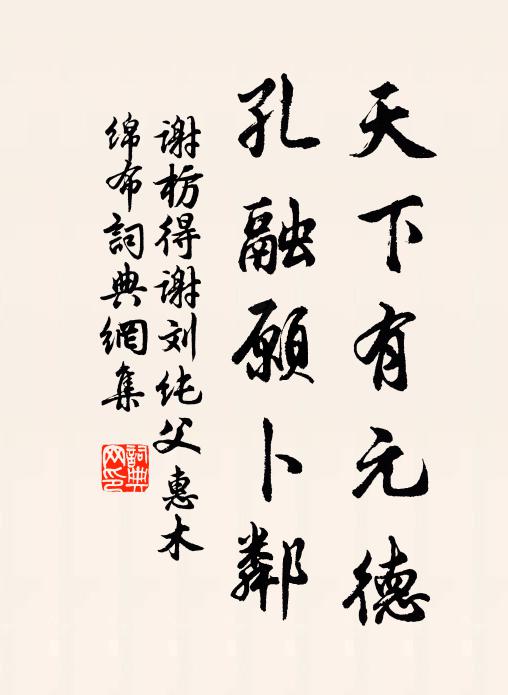 天下有元德
孔融願卜鄰
谢枋得谢刘纯父惠木
绵布詞典網集
詞典网印